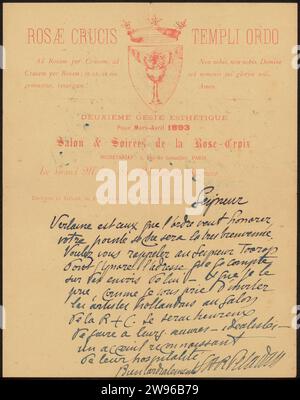 ROSÆ CRUCIS TEMPLI ORDO
Ad Rosam per Crucem, ad
Crucem per Rosam; in ea, in eis
gemmatus, resurgam.
Non nobis, non nobis, Domine
sed nominis tui gloriæ soli.
Amen.
DEUXIÈME GESTE ESTHÉTIQUE
Pour Mars-Avril 1893
Salon & Soirées de la Rose-Croix
SECRÉTARIAT PARIS
Le Grand
Seigneur
Verlaine est ceux que l'ordre veut honorer
votre parole sera très bienvenue
Voulez vous rappeler au Seigneur Toorop
dont j'ignore l'adresse que je compte
sur ses envois et que je le
prie comme je vous prie d'inviter
les artistes hollandais au Salon
de la R + C. Je serai heureux
de faire à leurs œuvres - idéalistes -
un accueil reconnaissant
de leur hospitalité
Bien cordialement
SAR Peladan
alamy
Image ID: 2W96B79
www.alamy.com